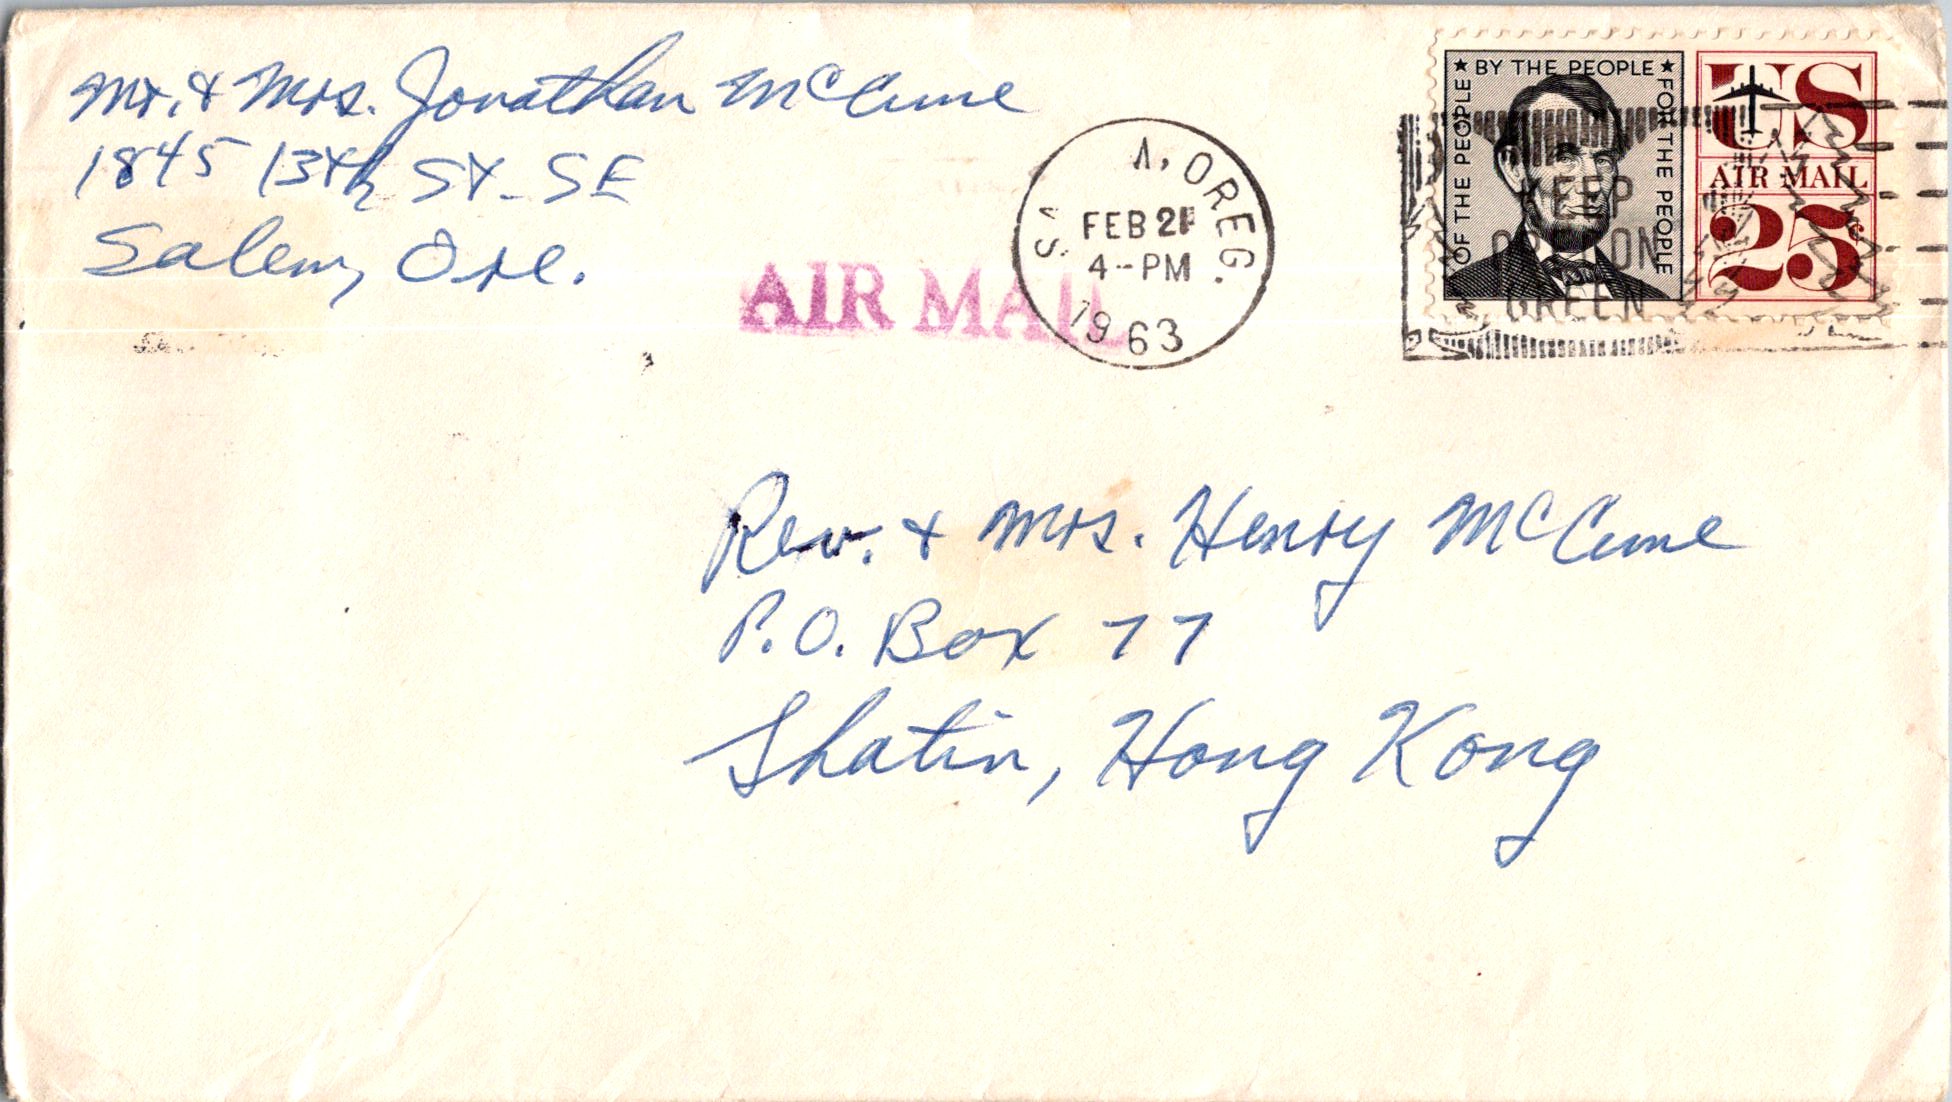 Mr. & Mrs. Jonathan McCune
1845 13th St. SE
Salem, Ore.
AIR MAIL
OREG.
FEB 21
4-PM
1963
OF THE PEOPLE ★ BY THE PEOPLE ★ FOR THE PEOPLE
US
AIR MAIL
25
KEEP
OREGON
GREEN
Rev. & Mrs. Henry McCune
P.O. Box 77
Shatin, Hong Kong